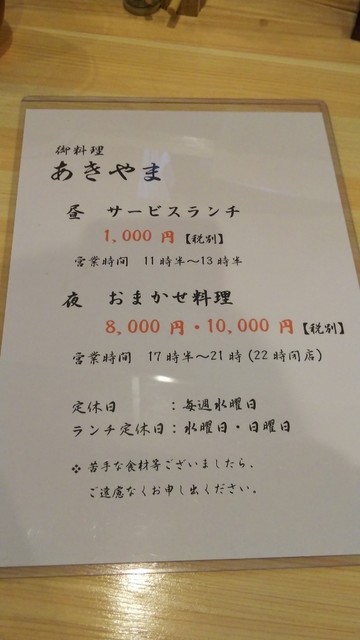 御料理
あきやま
昼　サービスランチ
1,000 円【税別】
営業時間　11時半～13時半
夜　おまかせ料理
8,000 円・10,000 円【税別】
営業時間　17時半～21時(22時閉店)
定休日　：毎週水曜日
ランチ定休日：水曜日・日曜日
❖ 苦手な食材等ございましたら、
ご遠慮なくお申し出ください。